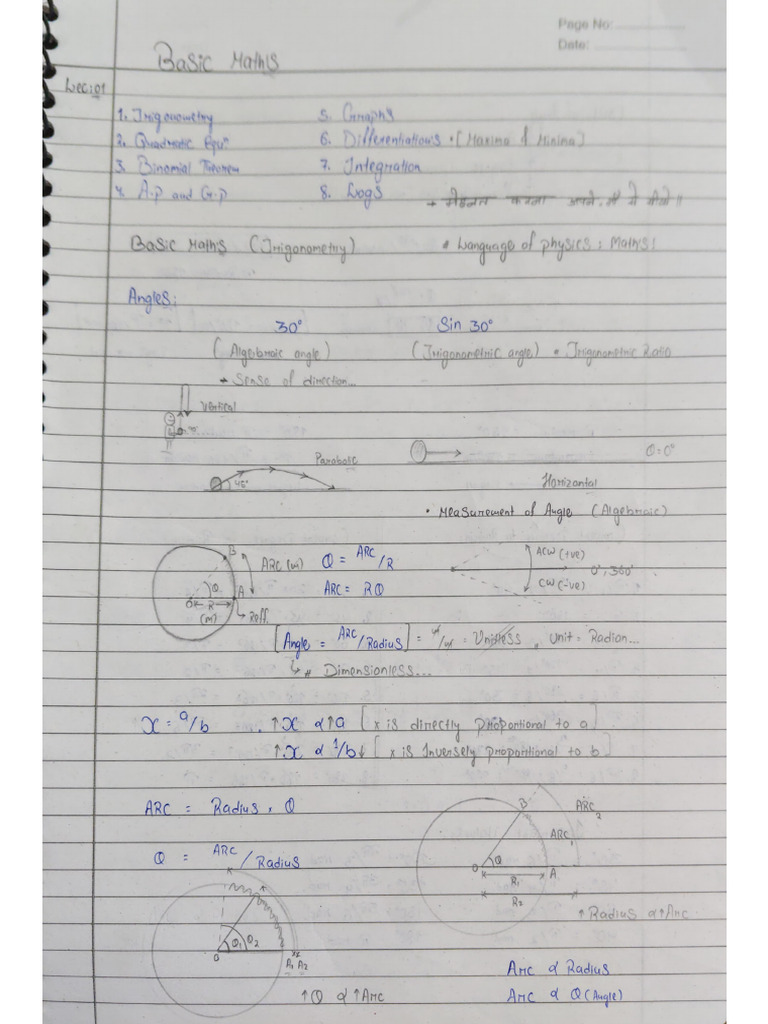 Page No:
Date:
Basic Maths
Lec:01
1. Trigonometry 5. Graphs
2. Quadratic Equn 6. Differentiations • [Maxima & Minima]
3. Binomial Theorem 7. Integration
4. A.p and G.p 8. Logs
→ मेहनत करना अपने
Basic Maths (Trigonometry) • Language of physics : Maths!
Angles:
30° Sin 30°
(Algebraic angle) (Trigonometric angle) • Trigonometric Ratio
→ Sense of direction...
Vertical
Parabolic
45°
θ=0°
Horizontal
• Measurement of Angle (Algebraic)
B
ARC (m) θ = ARC/R
ACW (+ve)
0°, 360°
ARC = Rθ
CW (-ve)
θ
O R A
(m) Reff.
[Angle = ARC/Radius] = m/m = Unitless, Unit = Radian...
↳ # Dimensionless...
x = a/b . ↑x ∝ ↑a [x is directly proportional to a]
↑x ∝ 1/b↓ [x is Inversely proportional to b]
ARC = Radius × θ
B ARC2
ARC1
θ = ARC/Radius
O θ A
R1
R2
↑ Radius ∝ ↑Arc
θ1 θ2
O A1 A2
Arc ∝ Radius
↑θ ∝ ↑Arc Arc ∝ θ (Angle)